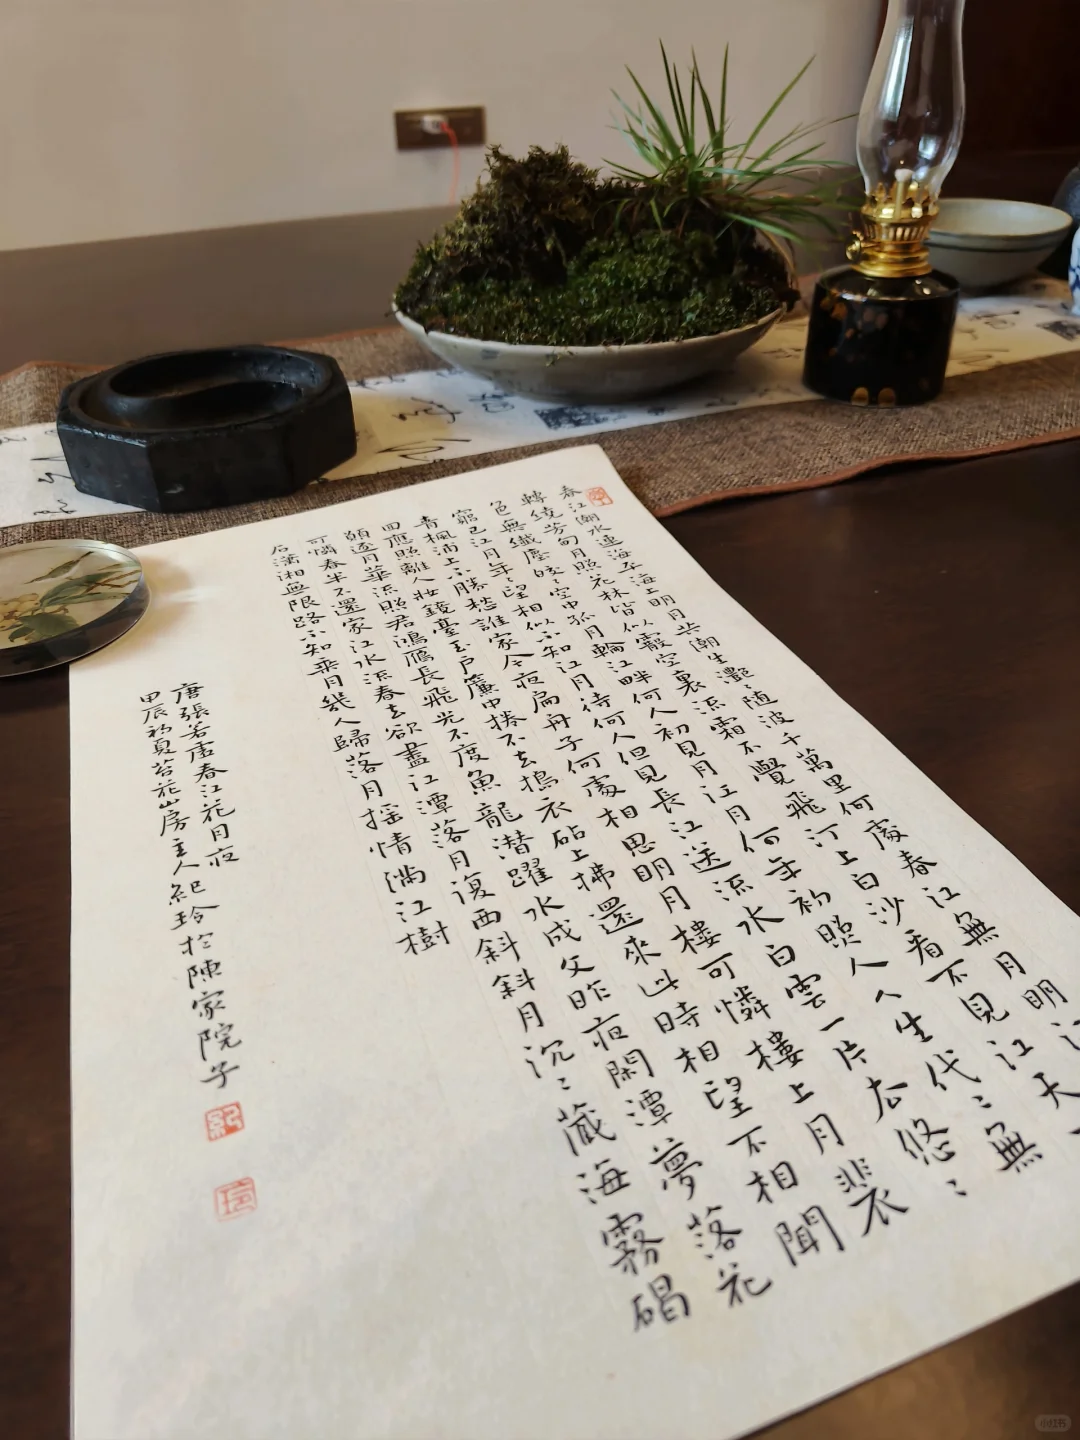 春江潮水連海平海上明月共潮生灧〻随波千萬里何處春江無月明江
轉繞芳甸月照花林皆似霰空裏流霜不覺飛汀上白沙看不見江天一
色無纖塵皎〻空中孤月輪江畔何人初見月江月何年初照人人生代〻無
窮已江月年〻望相似不知江月待何人但見長江送流水白雲一片去悠〻
青楓浦上不勝愁誰家今夜扁舟子何處相思明月樓可憐樓上月裴
回應照離人妝鏡臺玉户簾中捲不去搗衣砧上拂還來此時相望不相聞
願逐月華流照君鴻雁長飛光不度魚龍潜躍水成文昨夜閑潭夢落花
可憐春半不還家江水流春去欲盡江潭落月復西斜斜月沉〻藏海霧碣
石瀟湘無限路不知乘月幾人歸落月揺情满江樹
唐張若虚春江花月夜
甲辰初夏苔花山房主人紀玲於陳家院子
紀
玲
小红书